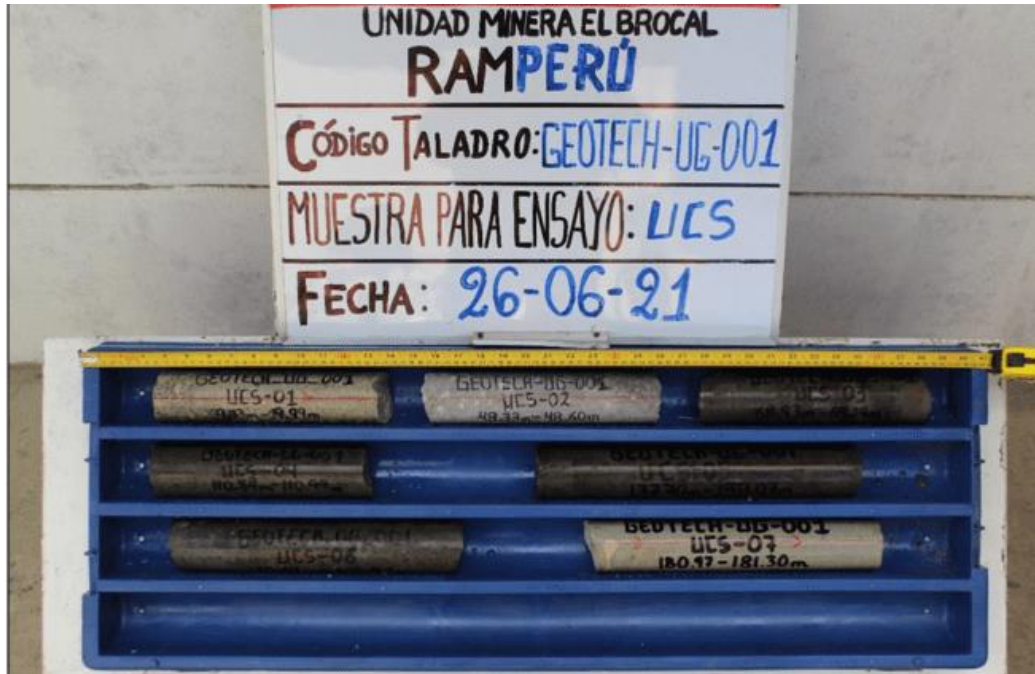 UNIDAD MINERA EL BROCAL
RAMPERÚ
CÓDIGO TALADRO: GEOTECH-UG-001
MUESTRA PARA ENSAYO: UCS
FECHA: 26-06-21
GEOTECH-UG-001
UCS-01
GEOTECH-UG-001
UCS-02
48.60m
UCS-03
GEOTECH-UG-001
UCS-04
110.99m
GEOTECH-UG-001
UCS-06
GEOTECH-UG-001
UCS-07
180.97-181.30m